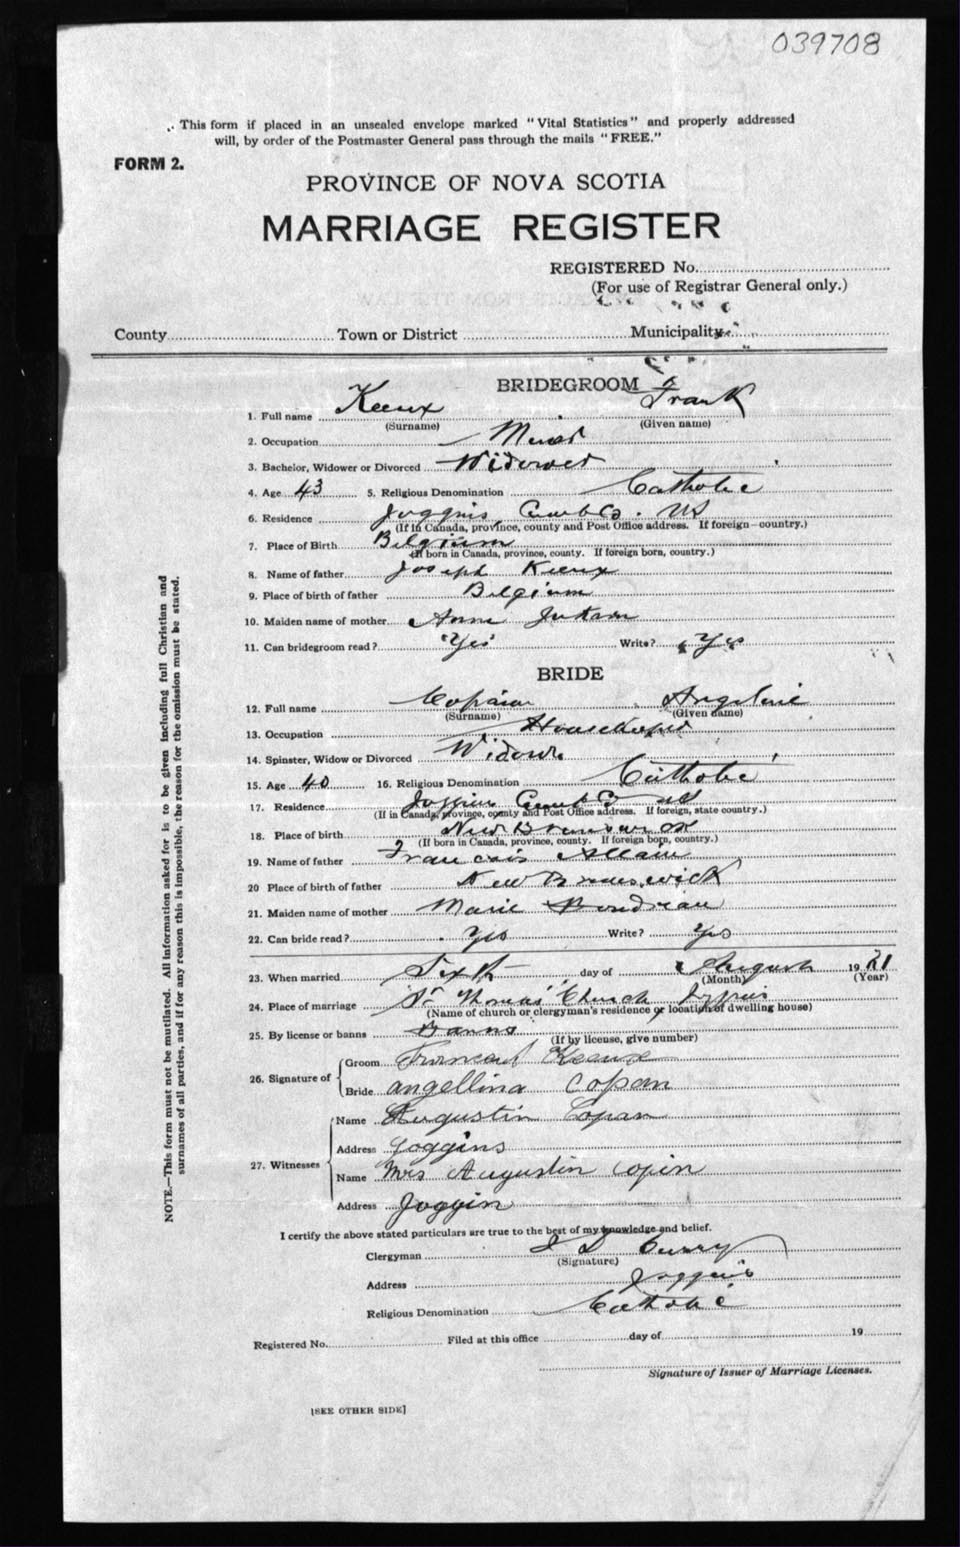 039708
This form if placed in an unsealed envelope marked "Vital Statistics" and properly addressed
will, by order of the Postmaster General pass through the mails "FREE."
FORM 2.
PROVINCE OF NOVA SCOTIA
MARRIAGE REGISTER
REGISTERED No.
(For use of Registrar General only.)
County Town or District Municipality
BRIDEGROOM
1. Full name Keeux Frank
(Surname) (Given name)
2. Occupation Miner
3. Bachelor, Widower or Divorced Widower
4. Age 43 5. Religious Denomination Catholic
6. Residence Joggins, Cumb Co. NS
(If in Canada, province, county and Post Office address. If foreign—country.)
7. Place of Birth Belgium
(If born in Canada, province, county. If foreign born, country.)
8. Name of father Joseph Keeux
9. Place of birth of father Belgium
10. Maiden name of mother Anne
11. Can bridegroom read? Yes Write? Yes
BRIDE
12. Full name Angeline
(Surname) (Given name)
13. Occupation Housekeeper
14. Spinster, Widow or Divorced Widow
15. Age 40 16. Religious Denomination Catholic
17. Residence Joggins Cumb Co NS
(If in Canada, province, county and Post Office address. If foreign, state country.)
18. Place of birth New Brunswick
(If born in Canada, province, county. If foreign born, country.)
19. Name of father Francois Allain
20 Place of birth of father New Brunswick
21. Maiden name of mother Marie Boudreau
22. Can bride read? Yes Write? Yes
23. When married Sixth day of August 1921
(Month) (Year)
24. Place of marriage St Thomas' Church Joggins
(Name of church or clergyman's residence or location of dwelling house)
25. By license or banns Banns
(If by license, give number)
26. Signature of
Groom Keeux
Bride angellina Copan
27. Witnesses
Name Augustin Copan
Address Joggins
Name Mrs Augustin Copin
Address Joggin
I certify the above stated particulars are true to the best of my knowledge and belief.
Clergyman J D Curry
(Signature)
Address Joggins
Religious Denomination Catholic
Registered No. Filed at this office day of 19
Signature of Issuer of Marriage Licenses.
[SEE OTHER SIDE]
NOTE.—This form must not be mutilated. All information asked for is to be given including full Christian and
surnames of all parties, and if for any reason this is impossible, the reason for the omission must be stated.